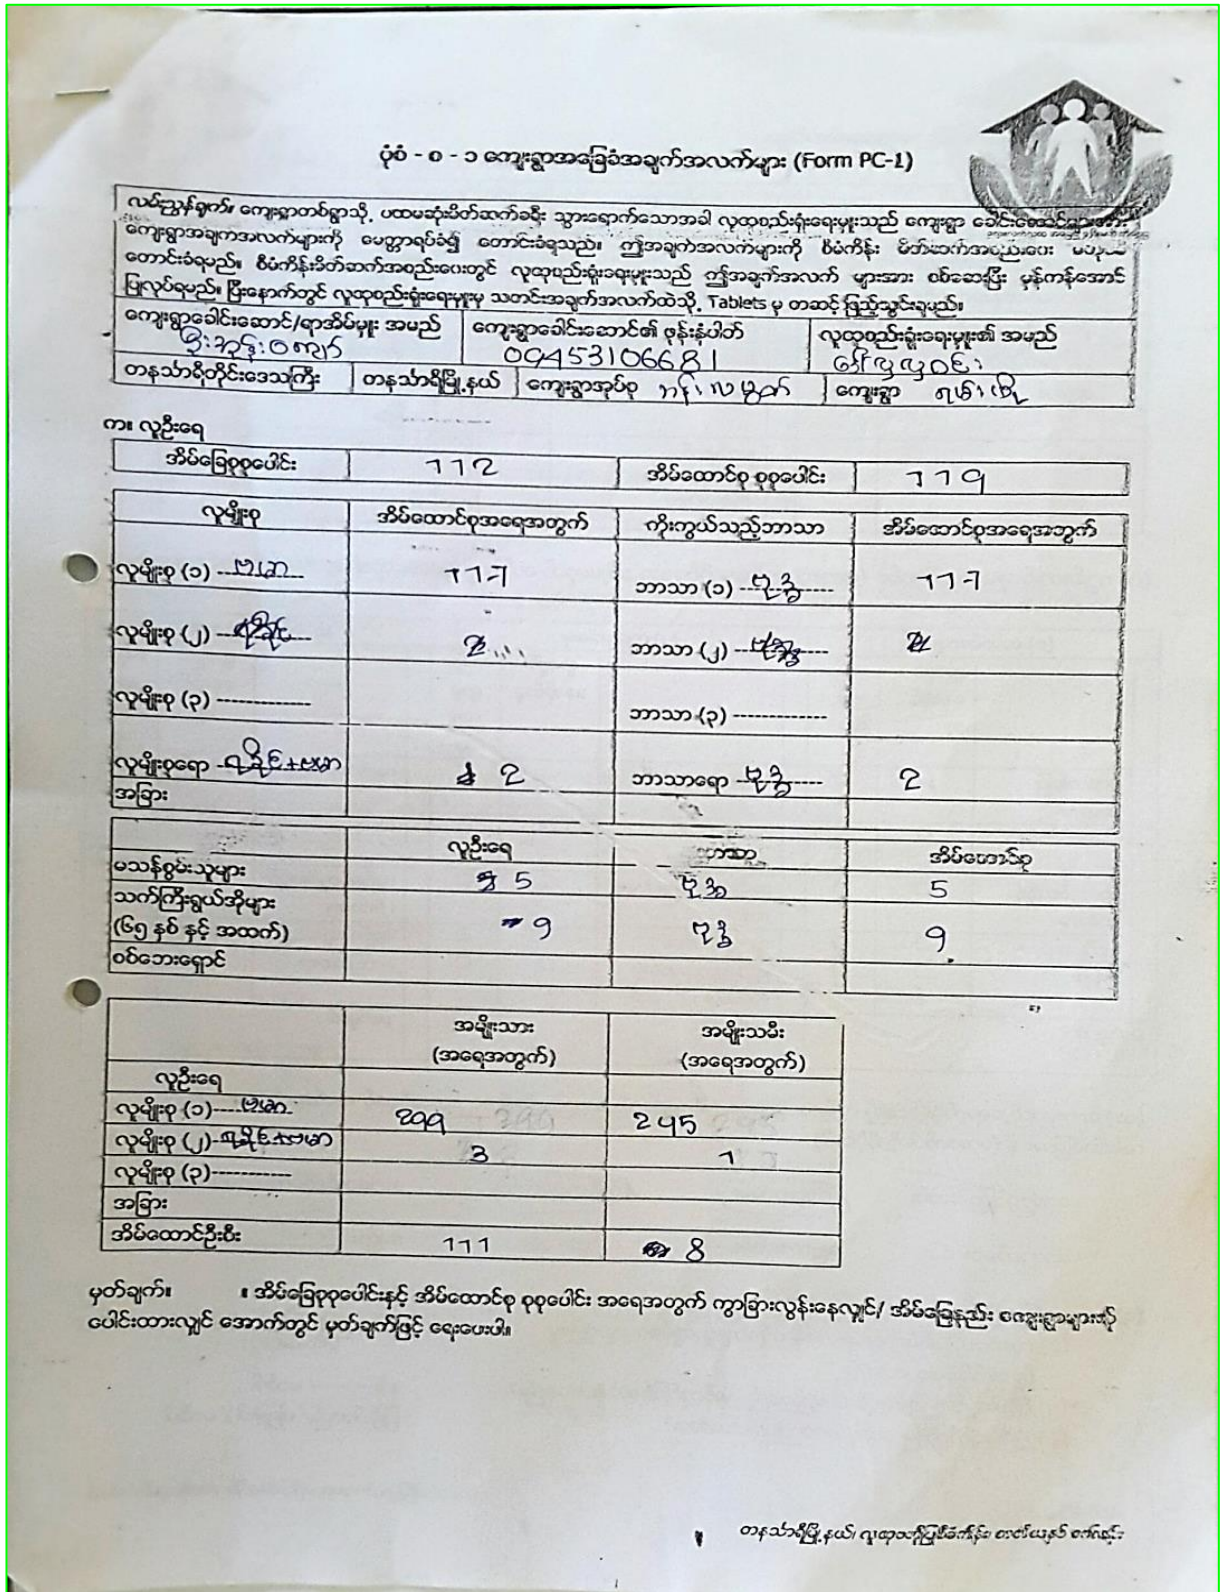 ပုံစံ - စ - ၁ ကျေးရွာအခြေခံအချက်အလက်များ (Form PC-1)
လမ်းညွှန်ချက်။ ကျေးရွာတစ်ရွာသို့ ပထမဆုံးမိတ်ဆက်ခရီး သွားရောက်သောအခါ လူထုစည်းရုံးရေးမှူးသည် ကျေးရွာ ခေါင်းဆောင်များအား
ကျေးရွာအချက်အလက်များကို မေတ္တာရပ်ခံ၍ တောင်းခံရသည်။ ဤအချက်အလက်များကို စီမံကိန်း မိတ်ဆက်အစည်းဝေး
တောင်းခံရမည်။ စီမံကိန်းမိတ်ဆက်အစည်းဝေးတွင် လူထုစည်းရုံးရေးမှူးသည် ဤအချက်အလက် များအား စစ်ဆေးပြီး မှန်ကန်အောင်
ပြုလုပ်ရမည်။ ပြီးနောက်တွင် လူထုစည်းရုံးရေးမှူးမှ သတင်းအချက်အလက်ထဲသို့ Tablets မှ တဆင့် ဖြည့်သွင်းရမည်။
ကျေးရွာခေါင်းဆောင်/ရာအိမ်မှူး အမည် ကျေးရွာခေါင်းဆောင်၏ ဖုန်းနံပါတ် လူထုစည်းရုံးရေးမှူး၏ အမည်
09453106681 ဒေါ်လှလှဝင်း
တနင်္သာရီတိုင်းဒေသကြီး တနင်္သာရီမြို့နယ် ကျေးရွာအုပ်စု ကျေးရွာ
က။ လူဦးရေ
အိမ်ခြေစုစုပေါင်း 112 အိမ်ထောင်စု စုစုပေါင်း 119
လူမျိုးစု အိမ်ထောင်စုအရေအတွက် ကိုးကွယ်သည့်ဘာသာ အိမ်ထောင်စုအရေအတွက်
လူမျိုးစု (၁) ---ဗမာ--- 117 ဘာသာ (၁) ---ဗုဒ္ဓ--- 117
လူမျိုးစု (၂) ဘာသာ (၂)
လူမျိုးစု (၃) ------------- ဘာသာ (၃) -------------
လူမျိုးစုရော -ရခိုင်+ဗမာ 2 ဘာသာရော ---ဗုဒ္ဓ--- 2
အခြား
လူဦးရေ ဘာသာ အိမ်ထောင်စု
မသန်စွမ်းသူများ 5 ဗုဒ္ဓ 5
သက်ကြီးရွယ်အိုများ
(၆၅ နှစ် နှင့် အထက်) 9 ဗုဒ္ဓ 9
စစ်ဘေးရှောင်
အမျိုးသား အမျိုးသမီး
(အရေအတွက်) (အရေအတွက်)
လူဦးရေ
လူမျိုးစု (၁)----ဗမာ- 299 245
လူမျိုးစု (၂)-ရခိုင်+ဗမာ 3 1
လူမျိုးစု (၃)------------
အခြား
အိမ်ထောင်ဦးစီး 111 8
မှတ်ချက်။ ။ အိမ်ခြေစုစုပေါင်းနှင့် အိမ်ထောင်စု စုစုပေါင်း အရေအတွက် ကွာခြားလွန်းနေလျှင်/ အိမ်ခြေနည်း ကျေးရွာများအား
ပေါင်းထားလျှင် အောက်တွင် မှတ်ချက်ဖြင့် ရေးပေးပါ။
တနင်္သာရီမြို့နယ်၊